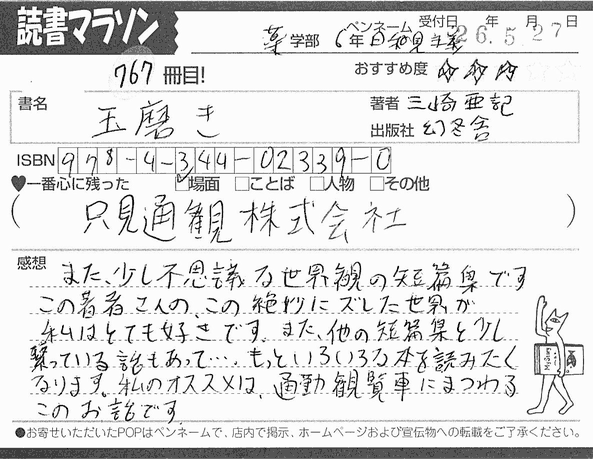 読書マラソン
薬 学部 ペンネーム 6年目
受付日 年 月 日
26.5.27
767 冊目!
おすすめ度 ☆ ☆ ☆ ☆ ☆
書名 玉磨き
著者 三崎亜記
出版社 幻冬舎
ISBN 978-4-344-02339-0
♥一番心に残った ☑場面 □ことば □人物 □その他
( 只見通観株式会社 )
感想 また、少し不思議な世界観の短篇集です
この著者さんの、この絶妙にズレた世界が
私はとても好きです。また、他の短篇集と少し
繋っている話もあって…。もっといろいろな本を読みたく
なります。私のオススメは、通勤観覧車にまつわる
このお話です
●お寄せいただいたPOPはペンネームで、店内で掲示、ホームページおよび宣伝物への転載をご了承ください。